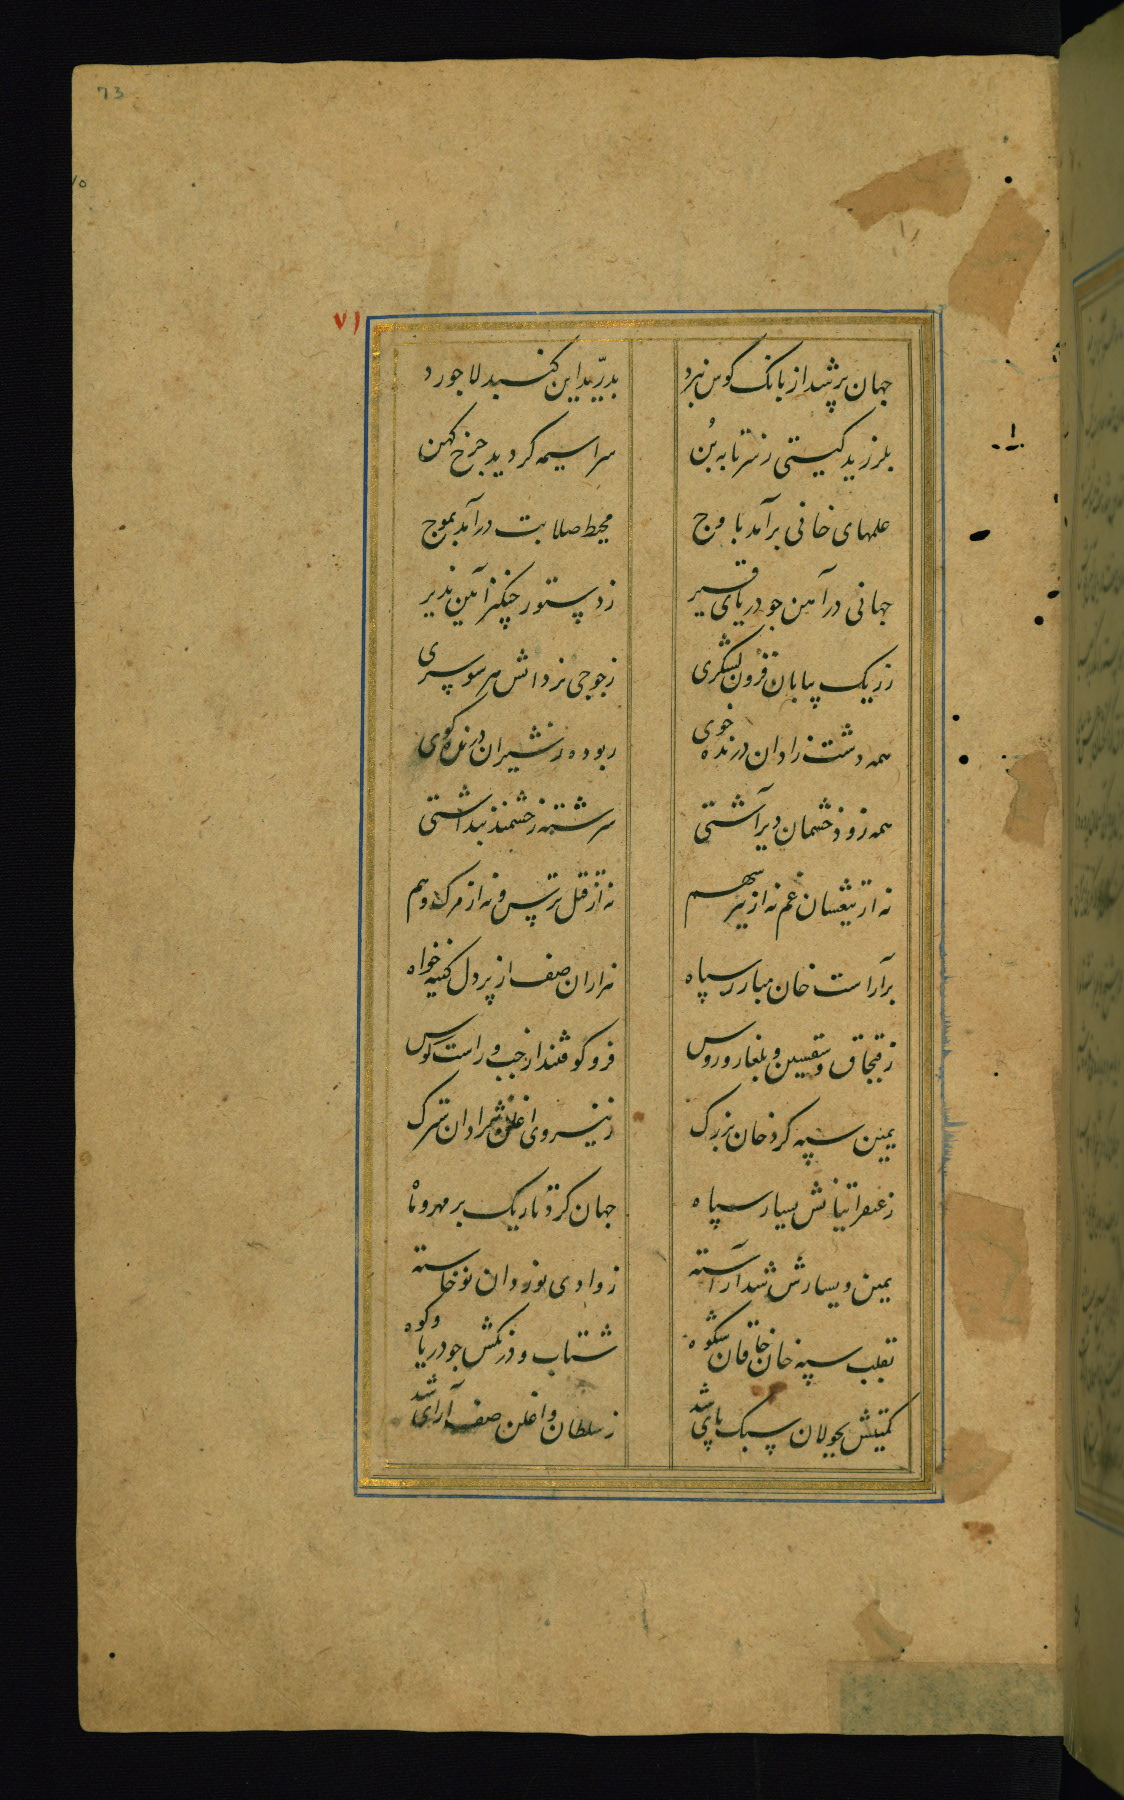 73
۷۱
جهان پر شد از بانک کوس نبرد بدرّید این کنبد لاجورد
بلرزید کیتی ز سر تا به بُن سراسیمه کردید چرخ کهن
علمهای خانی برآمد باوج محیط صلابت درآمد بموج
جهانی در آهن جو دریای قیر ز دستور چنکیز آیین پذیر
ز ریک بیابان فزون لشکری ز جوجی نژادانش هر سو سری
همه دشت زادان درنده خوی ربوده ز شیران درنده کوی
همه زود خشمان دیر آشتی سرشته ز خشمند پنداشتی
نه از تیغشان غم نه از تیر سهم نه از قتل ترس و نه از مرک وهم
برآراست خان مبارز سپاه هزاران صف از پردل کینه خواه
ز قبچاق و سقسین و بلغار و روس فرو کوفتند از چپ و راست کوس
یمین سپه کرد خان بزرک ز نیروی اغلن نژادان سترک
ز عنقراتیانش یسار سپاه جهان کرد تاریک بر مهر و ماه
یمین و یسارش شد آراسته ز وادی نوردان نوخاسته
بقلب سپه خان خاقان شکوه شتاب و درنکش جو دریا و کوه
کمیتش بجولان سبک پای شد ز سلطان و اغلن صف آرای شد